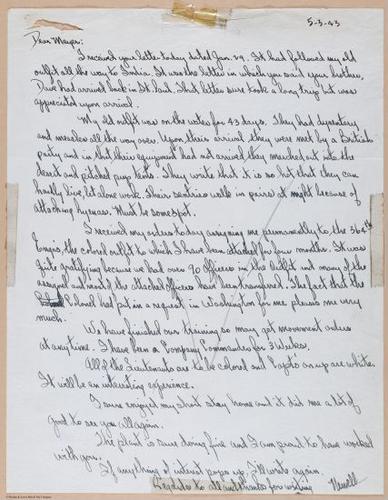 5-3-43
Dear Mayer:
I received your letter today dated Jan. 29. It had followed my old
outfit all the way to India. It was the letter in which you said your brother,
Dave had arrived back in St. Paul. That letter sure took a long trip but was
appreciated upon arrival.
My old outfit was on the water for 43 days. They had dysentary
and measles all the way over. Upon their arrival they were met by a British
party and in that their equipment had not arrived they marched out into the
desert and pitched pup tents. They write that it is so hot that they can
hardly live, let alone work. Their sentries walk in pairs at night because of
attacking hyenas. Must be some spot.
I received my orders today assigning me permanently to the 364th
Engrs, the colored outfit to which I have been attached for four months. It was
quite gratifying because we had over 90 officers in the outfit and many of the
assigned and most of the attached officers have been transferred. The fact that the
had put in a request in Washington for me pleases me very
much.
We have finished our training so may get movement orders
at any time. I have been a Company Commander for 3 weeks.
All of the Lieutenants are to be colored and Capts on up are white.
It will be an interesting experience.
I sure enjoyed my short stay home and it did me a lot of
good to see you all again.
The plant is sure doing fine and I am proud to have worked
with you.
If anything of interest pops up, I'll write again.
Regards to all and thanks for writing
Newell